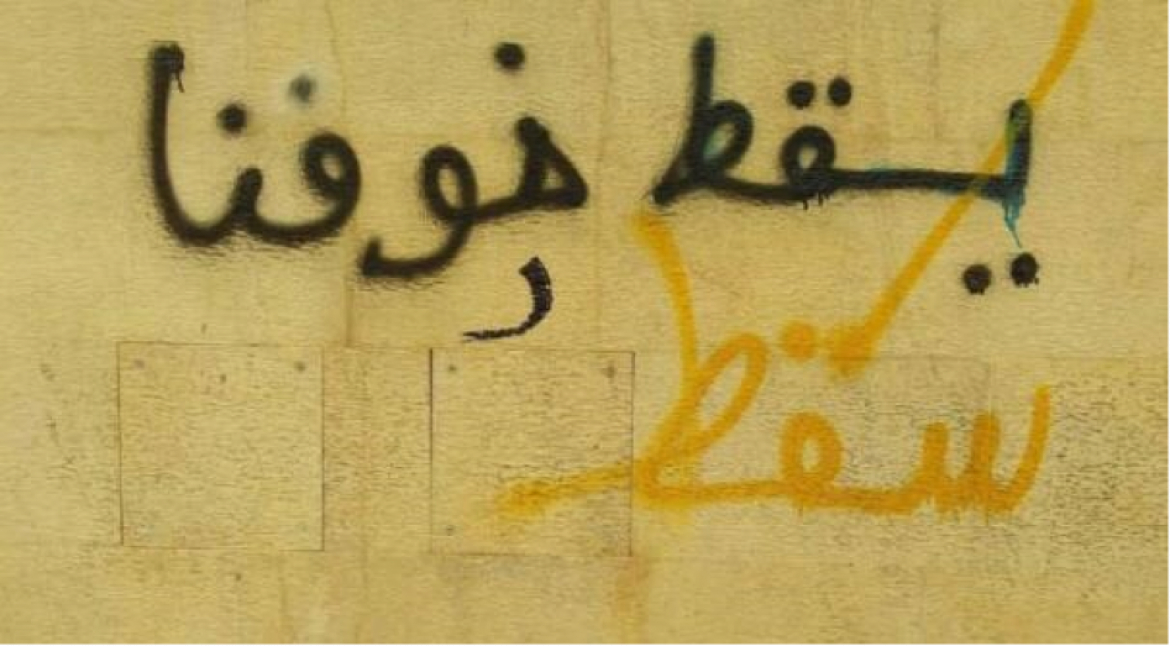 يسقط خوفنا
ر
سقط